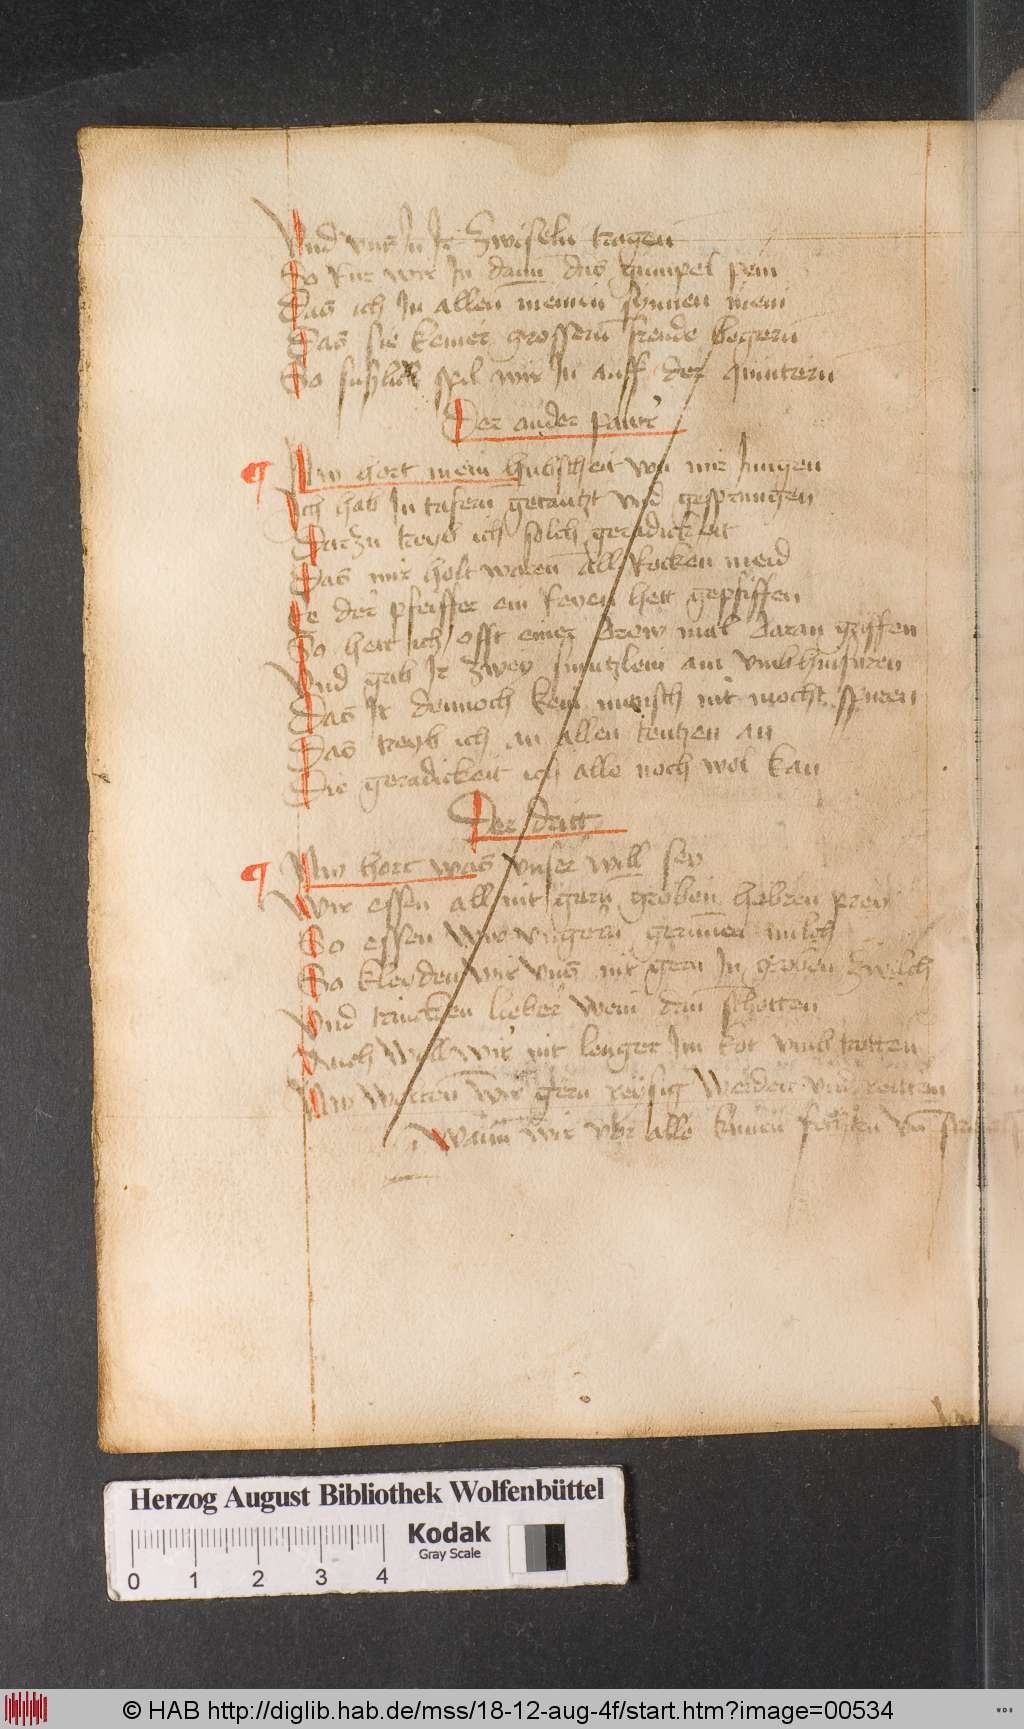 Vnd vns In Ir zwifeln tragen
So kur wir In dann das gumpel pein
Das ich In allen meinen synnen mein
Das sie keiner grossern freude begern
So spil wir In auff der quintern
Der ander paur
Nw hort mein hubscheit von mir Jungen
Ich hab In tafern getantzt vnd gesprungen
Darzu treyb ich solch geradickeit
Das mir holt waren all Rocken meid
So der pfeiffer ein Reyen hett gepfiffen
So hett ich offt einer drew mal daran griffen
Vnd gab Ir zwey smutzlein am vmbhinfuren
Das Ir dennoch kein mensch nit mocht spuren
Das treyb ich an allen tentzen an
Die geradickeit ich alle noch wol kan
Der dritt
Nw hort was vnser will sey
Wir essen all nit gern groben hebren prey
So essen wir vngern gerunnen milch
So kleyden wir vns nit gern In groben zwilch
Vnd trincken lieber wein dann schotten
Auch woll wir nit lenger Im kot vmb trotten
Nw wolten wir gern reysig werden vnd reitten
Wann wir vbr alle kunnen fechten vn
Herzog August Bibliothek Wolfenbüttel
Kodak
Gray Scale
0 1 2 3 4
© HAB http://diglib.hab.de/mss/18-12-aug-4f/start.htm?image=00534